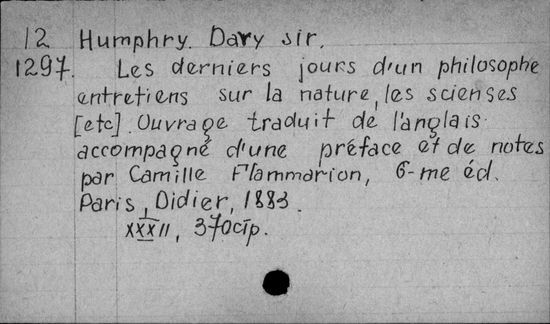 12 Humphry. Davy sir.
1297. Les derniers jours d'un philosophe
entretiens sur la nature, les scienses
[etc]. Ouvrage traduit de l'anglais
accompagné d'une préface et de notes
par Camille Flammarion, 6-me éd.
Paris, Didier, 1883.
XXXII, 370 c̄ıp.